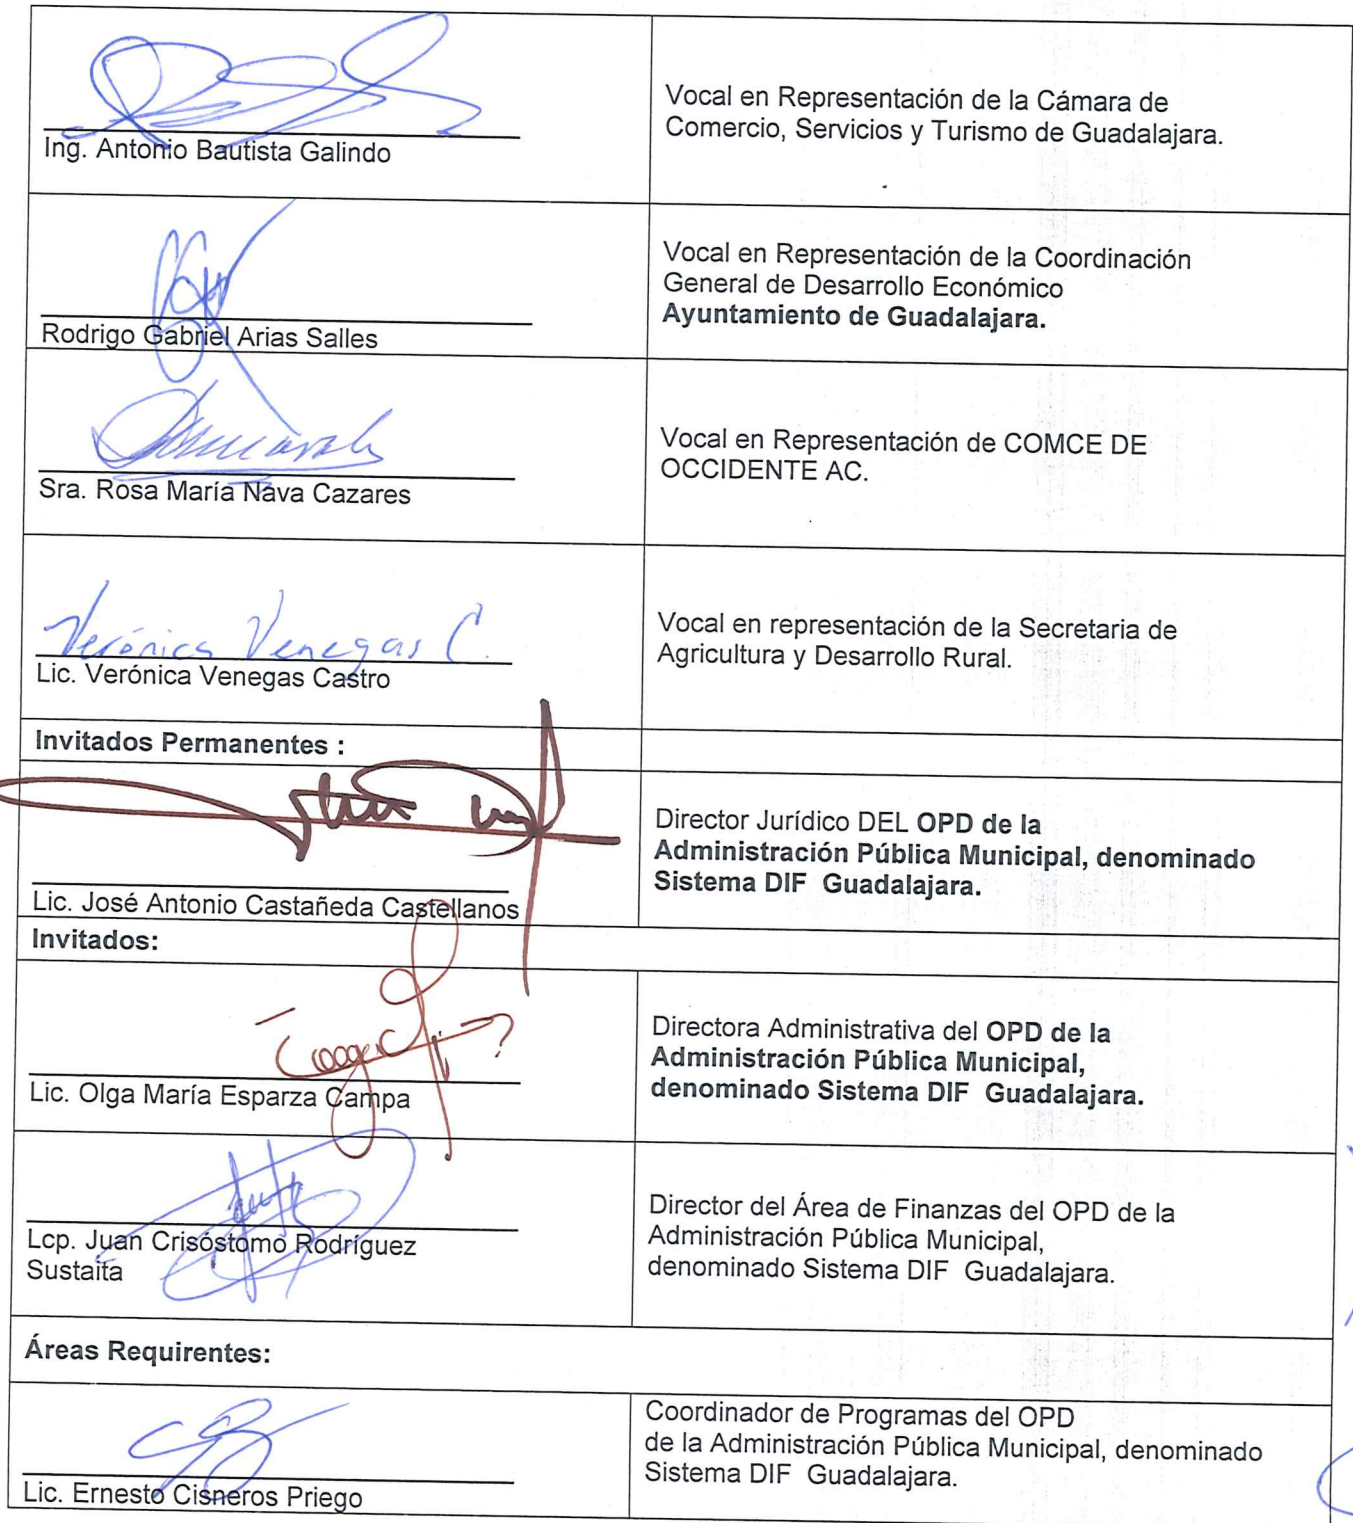 Ing. Antonio Bautista Galindo
Vocal en Representación de la Cámara de
Comercio, Servicios y Turismo de Guadalajara.
Rodrigo Gabriel Arias Salles
Vocal en Representación de la Coordinación
General de Desarrollo Económico
Ayuntamiento de Guadalajara.
Sra. Rosa María Nava Cazares
Vocal en Representación de COMCE DE
OCCIDENTE AC.
Verónica Venegas C.
Lic. Verónica Venegas Castro
Vocal en representación de la Secretaria de
Agricultura y Desarrollo Rural.
Invitados Permanentes :
Lic. José Antonio Castañeda Castellanos
Director Jurídico DEL OPD de la
Administración Pública Municipal, denominado
Sistema DIF Guadalajara.
Invitados:
Lic. Olga María Esparza Campa
Directora Administrativa del OPD de la
Administración Pública Municipal,
denominado Sistema DIF Guadalajara.
Lcp. Juan Crisóstomo Rodríguez
Sustaita
Director del Área de Finanzas del OPD de la
Administración Pública Municipal,
denominado Sistema DIF Guadalajara.
Áreas Requirentes:
Lic. Ernesto Cisneros Priego
Coordinador de Programas del OPD
de la Administración Pública Municipal, denominado
Sistema DIF Guadalajara.